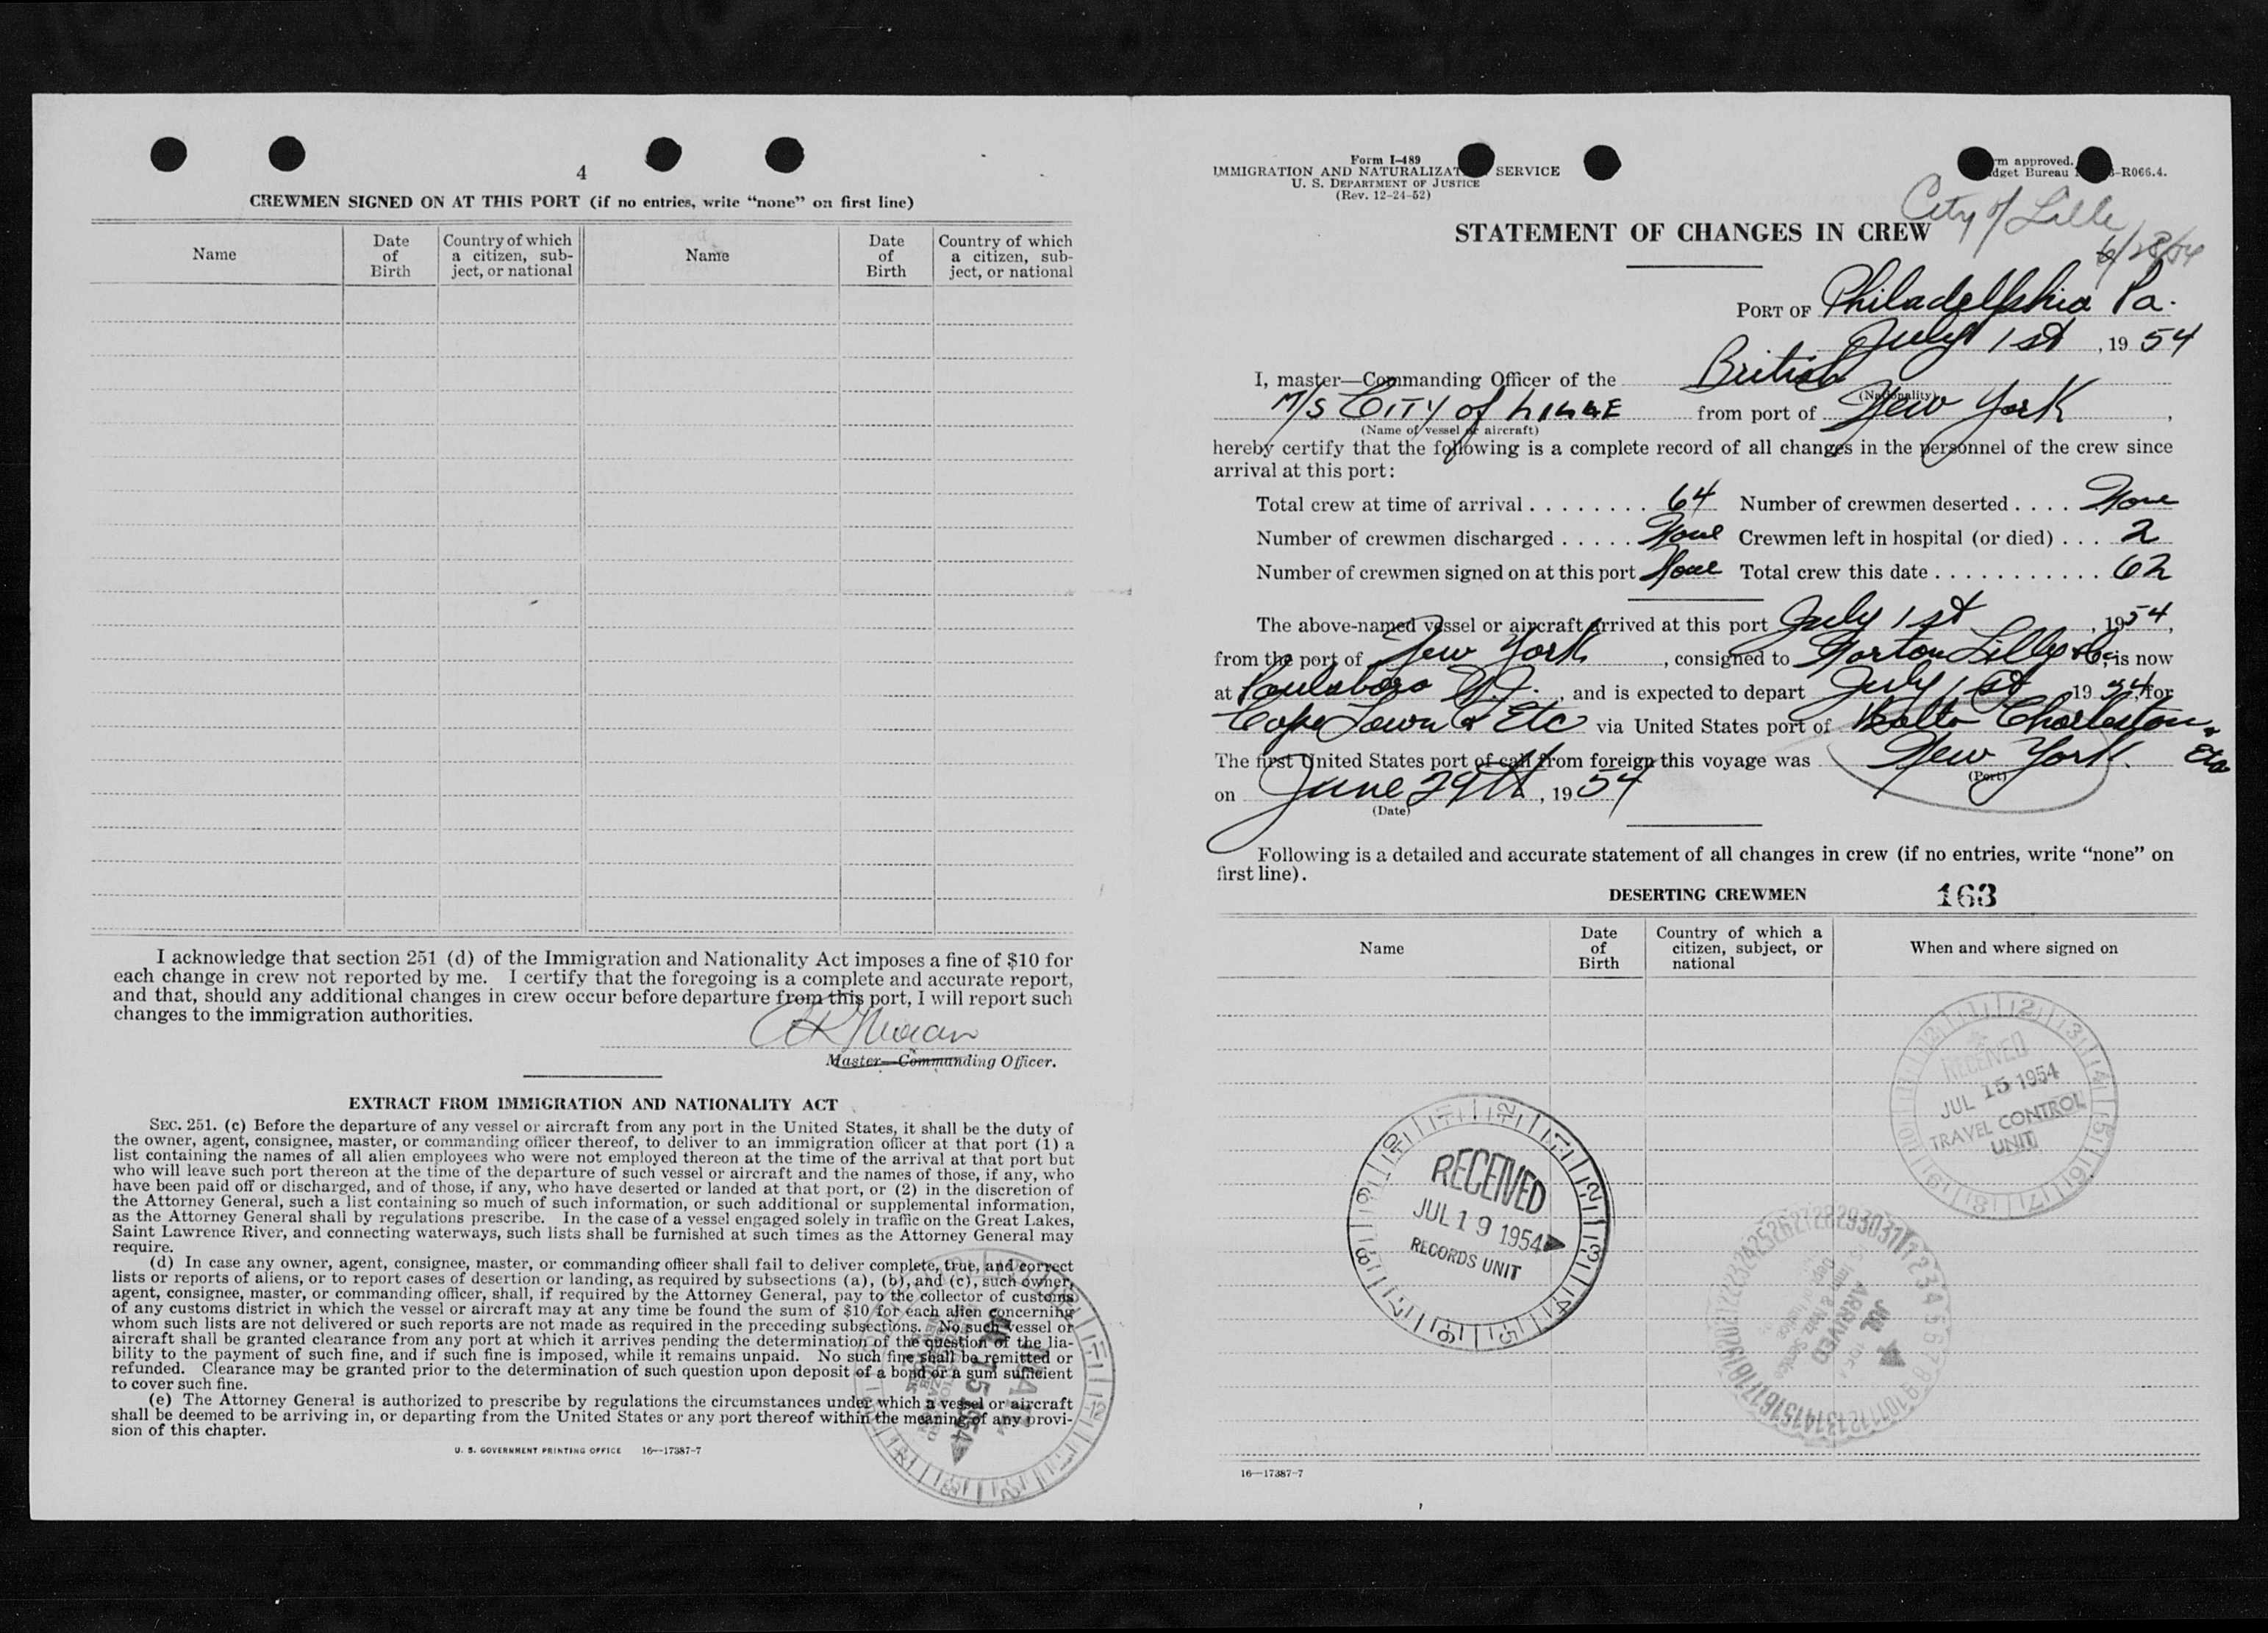 4
CREWMEN SIGNED ON AT THIS PORT (if no entries, write “none” on first line)
Name
Date of Birth
Country of which a citizen, sub-ject, or national
Name
Date of Birth
Country of which a citizen, sub-ject, or national
I acknowledge that section 251 (d) of the Immigration and Nationality Act imposes a fine of $10 for
each change in crew not reported by me. I certify that the foregoing is a complete and accurate report,
and that, should any additional changes in crew occur before departure from this port, I will report such
changes to the immigration authorities.
Master—Commanding Officer.
EXTRACT FROM IMMIGRATION AND NATIONALITY ACT
SEC. 251. (c) Before the departure of any vessel or aircraft from any port in the United States, it shall be the duty of
the owner, agent, consignee, master, or commanding officer thereof, to deliver to an immigration officer at that port (1) a
list containing the names of all alien employees who were not employed thereon at the time of the arrival at that port but
who will leave such port thereon at the time of the departure of such vessel or aircraft and the names of those, if any, who
have been paid off or discharged, and of those, if any, who have deserted or landed at that port, or (2) in the discretion of
the Attorney General, such a list containing so much of such information, or such additional or supplemental information,
as the Attorney General shall by regulations prescribe. In the case of a vessel engaged solely in traffic on the Great Lakes,
Saint Lawrence River, and connecting waterways, such lists shall be furnished at such times as the Attorney General may
require.
(d) In case any owner, agent, consignee, master, or commanding officer shall fail to deliver complete, true, and correct
lists or reports of aliens, or to report cases of desertion or landing, as required by subsections (a), (b), and (c), such owner,
agent, consignee, master, or commanding officer, shall, if required by the Attorney General, pay to the collector of customs
of any customs district in which the vessel or aircraft may at any time be found the sum of $10 for each alien concerning
whom such lists are not delivered or such reports are not made as required in the preceding subsections. No such vessel or
aircraft shall be granted clearance from any port at which it arrives pending the determination of the question of the lia-
bility to the payment of such fine, and if such fine is imposed, while it remains unpaid. No such fine shall be remitted or
refunded. Clearance may be granted prior to the determination of such question upon deposit of a bond or a sum sufficient
to cover such fine.
(e) The Attorney General is authorized to prescribe by regulations the circumstances under which a vessel or aircraft
shall be deemed to be arriving in, or departing from the United States or any port thereof within the meaning of any provi-
sion of this chapter.
U. S. GOVERNMENT PRINTING OFFICE 16—17387-7
Form I-489
IMMIGRATION AND NATURALIZAT SERVICE
U. S. DEPARTMENT OF JUSTICE
(Rev. 12-24-52)
rm approved.
dget Bureau -R066.4.
City of Lille
6/28/54
STATEMENT OF CHANGES IN CREW
PORT OF Philadelphia Pa.
July 1st, 19 54
I, master—Commanding Officer of the British
(Nationality)
M/S CITY of LILLE from port of New York,
(Name of vessel or aircraft)
hereby certify that the following is a complete record of all changes in the personnel of the crew since
arrival at this port:
Total crew at time of arrival . . . . . . . . 64 Number of crewmen deserted . . . . None
Number of crewmen discharged . . . . . None Crewmen left in hospital (or died) . . . 2
Number of crewmen signed on at this port None Total crew this date . . . . . . . . . . . 62
The above-named vessel or aircraft arrived at this port July 1st, 1954,
from the port of New York, consigned to Norton Lilly & Co, is now
at Paulsboro N.J., and is expected to depart July 1st 19 54, for
Cape Town & Etc via United States port of Balto Charleston & Etc
The first United States port of call from foreign this voyage was New York.
(Port)
on June 29th, 19 54
(Date)
Following is a detailed and accurate statement of all changes in crew (if no entries, write “none” on
first line).
DESERTING CREWMEN 163
Name
Date of Birth
Country of which a citizen, subject, or national
When and where signed on
RECEIVED
JUL 15 1954
TRAVEL CONTROL
UNIT
RECEIVED
JUL 19 1954
RECORDS UNIT
ARRIVED
JUL
16—17387-7